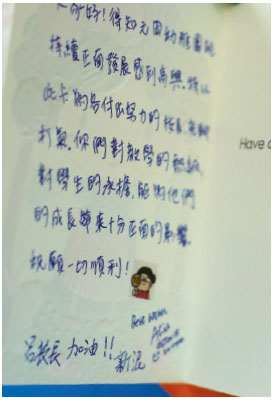 大家好!得知元田幼稚園能
持續正面發展感到高興。特以
此卡為各付出努力的校長、老師
打氣。你們對教學的熱誠,
對學生的承擔,能為他們
的成長帶來十分正面的影響。
祝願一切順利!
Best wishes
呂校長 加油!!
Have a